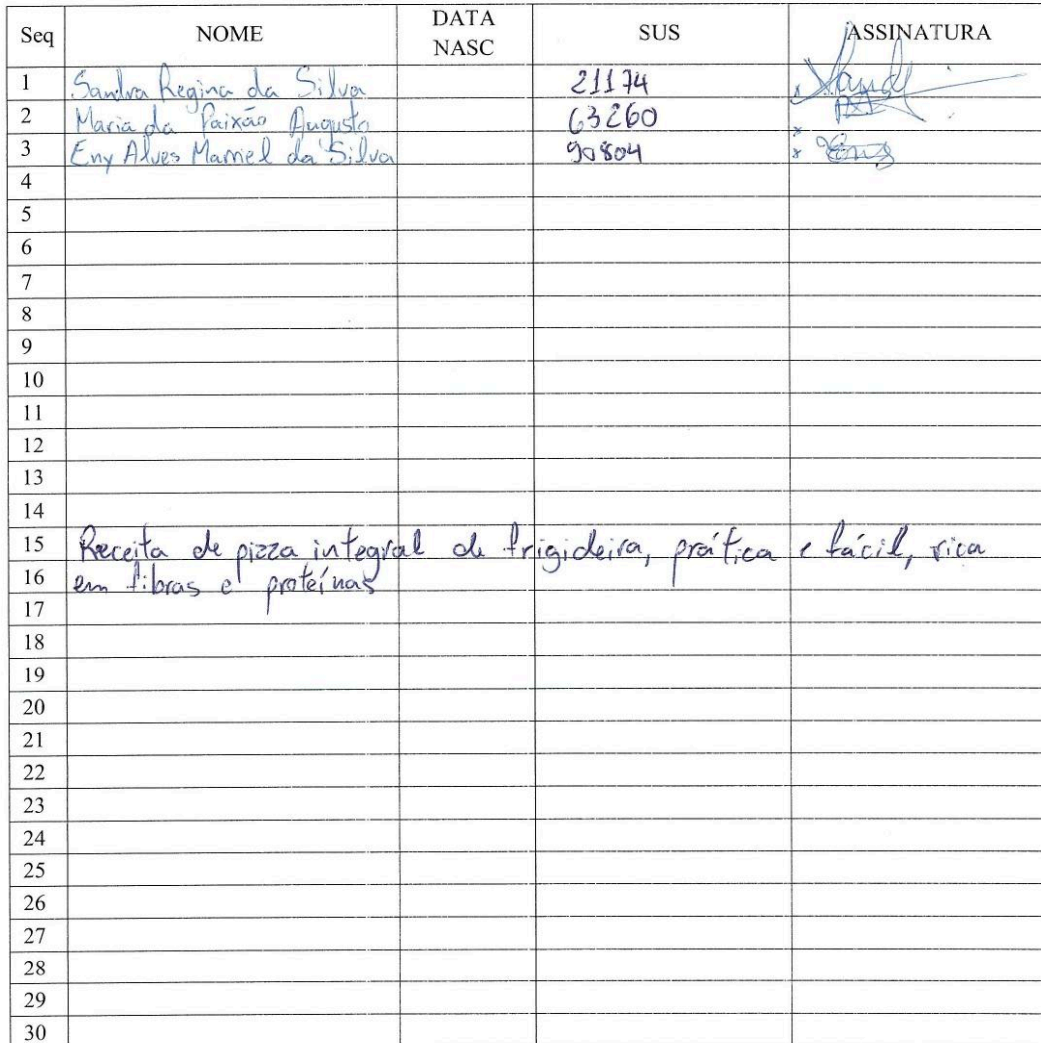 Seq NOME DATA NASC SUS ASSINATURA
1 Sandra Regina da Silva 21174
2 Maria da Paixão Augusto 63260
3 Eny Alves Mamel da Silva 90804
4
5
6
7
8
9
10
11
12
13
14
15 Receita de pizza integral de frigideira, prática e fácil, rica
16 em fibras e proteínas
17
18
19
20
21
22
23
24
25
26
27
28
29
30